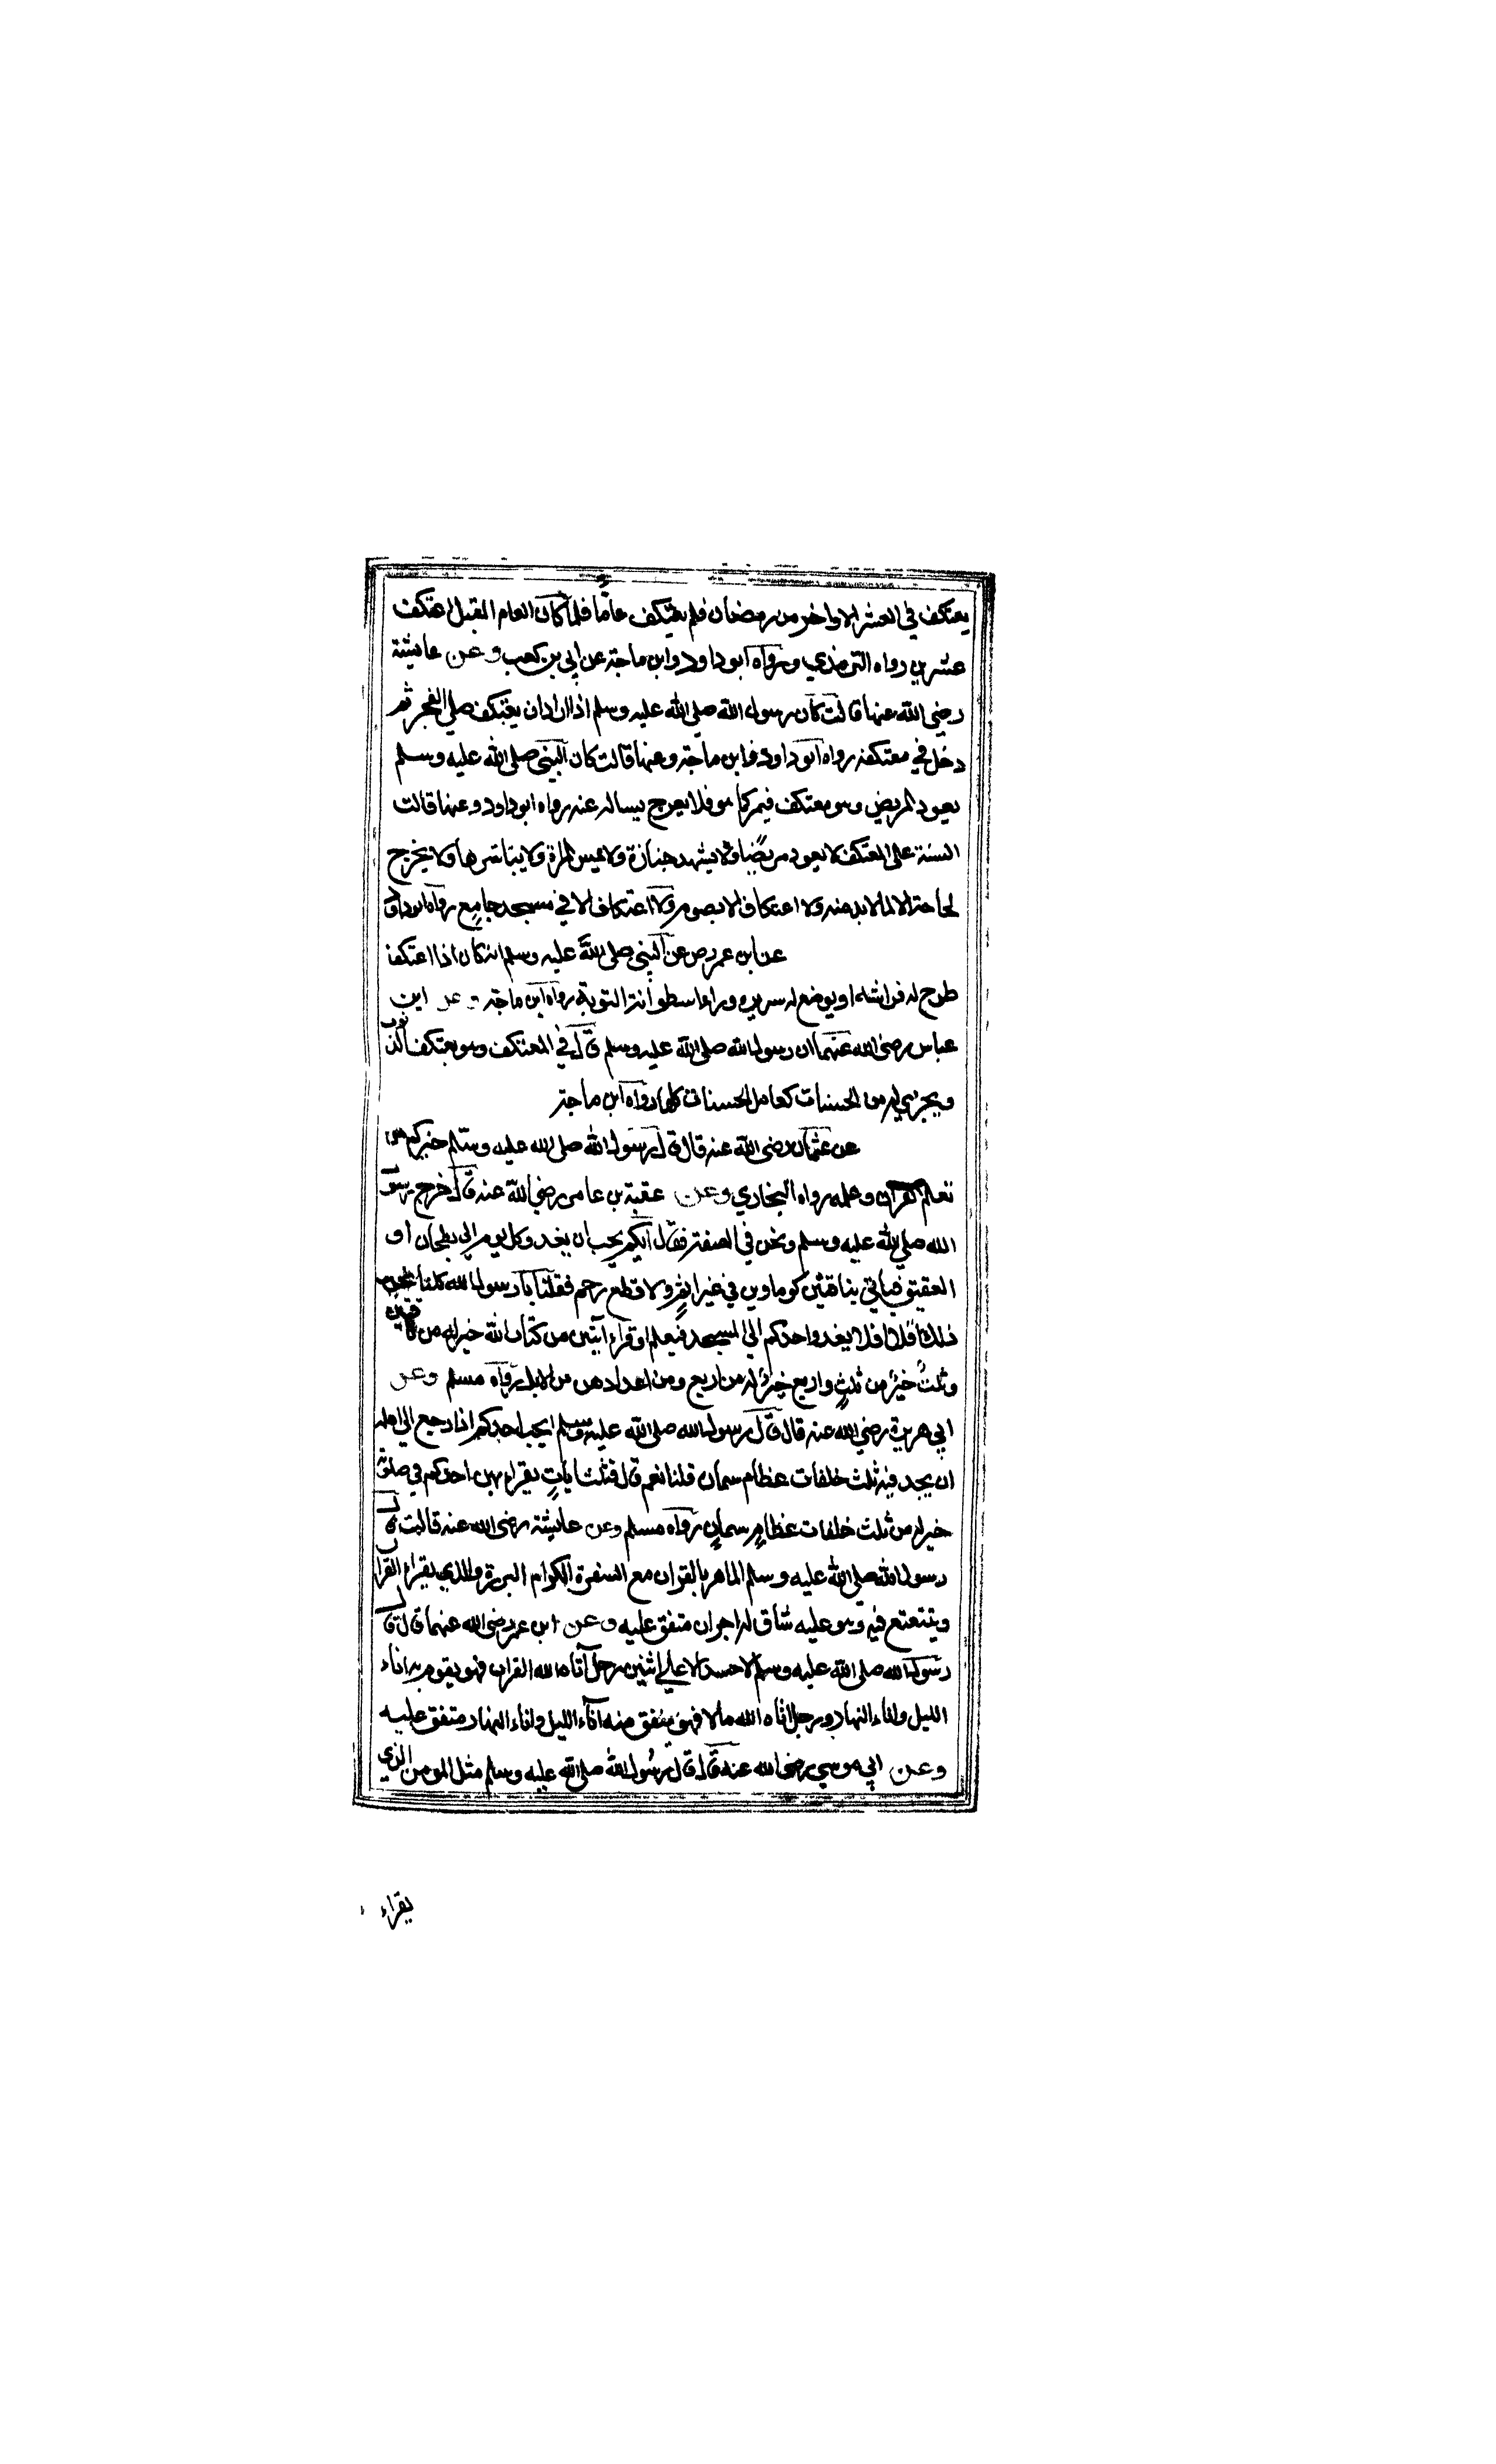 يعتكف في العشر الاواخر من رمضان فلم يعتكف عاما فلما كان العام المقبل اعتكف
عشرين رواه الترمذي ورواه ابو داود وابن ماجة عن ابي بن كعب وعن عائشة
رضي الله عنها قالت كان رسول الله صلى الله عليه وسلم اذا اراد ان يعتكف صلي الفجر ثم
دخل في معتكفه رواه ابو داود وابن ماجة وعنها قالت كان النبي صلى الله عليه وسلم
يعود المريض وهو معتكف فيمر كما هو فلا يعرج يساله عنه رواه ابو داود وعنها قالت
السنة على المعتكف لا يعود مريضا ولا يشهد جنازة ولا يمس المراة ولا يباشرها ولا يخرج
لحاجة الا لما لا بد منه ولا اعتكاف الا بصوم ولا اعتكاف الا في مسجد جامع رواه ابو داود
عن ابن عمر رض عن النبي صلى الله عليه وسلم انه كان اذا اعتكف
طرح له فراشه او يوضع له سريره وراء اسطوانة التوبة رواه ابن ماجة وعن ابن
عباس رضى الله عنهما ان رسول الله صلى الله عليه وسلم قال في المعتكف وهو يعتكف الذنوب
ويجري له من الحسنات كعامل الحسنات كلها رواه ابن ماجة
عن عثمان رضى الله عنه قال قال رسول الله صلى الله عليه وسلم خيركم من
تعلم القران وعلمه رواه البخاري وعن عقبة بن عامر رضي الله عنه قال خرج رسول
الله صلي الله عليه وسلم ونحن في الصفة فقال ايكم يحب ان يغدو كل يوم الى بطحان او
العقيق فياتي بناقتين كوماوين في غير اثم ولا قطع رحم فقلنا يا رسول الله كلنا نحب
ذلك قال افلا يغدو احدكم الي المسجد فيعلم او يقراء آيتين من كتاب الله خير له من ناقتين
وثلث خير من ثلث واربع خير له من اربع ومن اعدادهن من الابل رواه مسلم وعن
ابي هريرة رضي الله عنه قال قال رسول الله صلى الله عليه وسلم ايحب احدكم اذا رجع الي اهله
ان يجد فيه ثلث خلفات عظام سمان قلنا نعم قال فثلث ايات يقراء بهن احدكم في صلوته
خير له من ثلث خلفات عظام سمان رواه مسلم وعن عائشة رضى الله عنه قالت قال
رسول الله صلى الله عليه وسلم الماهر بالقران مع السفرة الكرام البررة والذي يقراء القران
ويتتعتع فيه وهو عليه شاق له اجران متفق عليه وعن ابن عمر رضى الله عنهما قال قال
رسول الله صلى الله عليه وسلم لا حسد الا على اثنين رجل آتاه الله القران فهو يقوم به اناء
الليل واناء النهار ورجل اتاه الله مالا فهو ينفق منه آناء الليل واناء النهار متفق عليه
وعن ابي موسي رضى الله عنه قال قال رسول الله صلى الله عليه وسلم مثل المومن الذي
يقراء